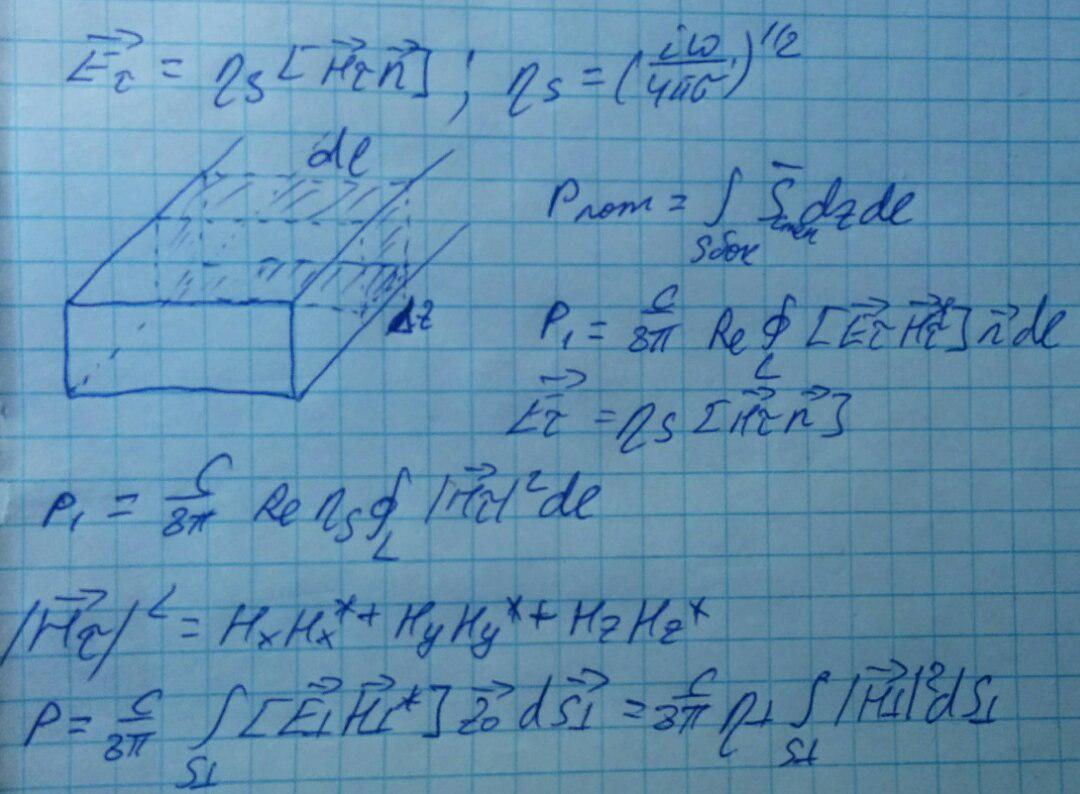 E⃗τ = ηs [H⃗τ n⃗] ; ηs = (iω/4πσ)^1/2
dl
Pпот = ∫Sбок S̄ dz dl
Δz
P₁ = c/8π Re ∮L [E⃗τ H⃗τ*] n⃗ dl
E⃗τ = ηs [H⃗τ n⃗]
P₁ = c/8π Re ηs ∮L |H⃗τ|² dl
|H⃗τ|² = HxHx* + HyHy* + HzHz*
P = c/8π ∫S⊥ [E⃗⊥ H⃗⊥*] z⃗₀ dS⃗⊥ = c/8π η⊥ ∫S⊥ |H⃗⊥|² dS⊥